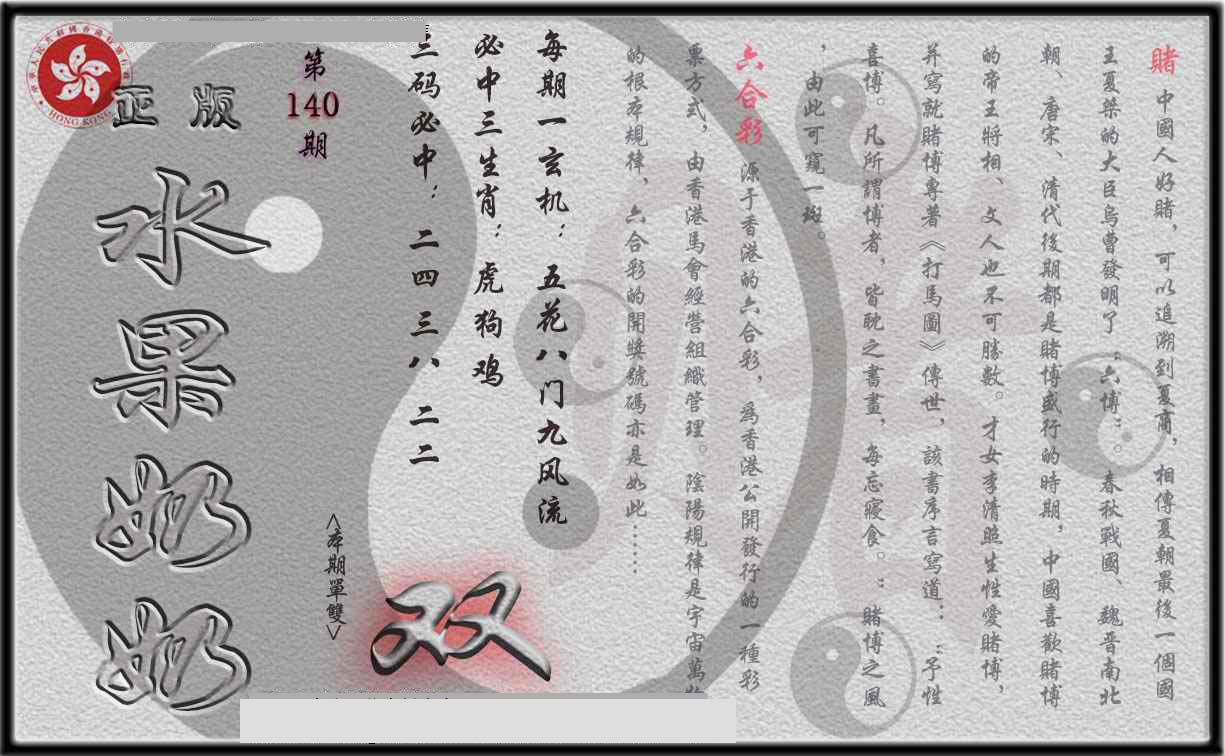 賭 中國人好賭，可以追溯到夏商，相傳夏朝最後一個國
王夏桀的大臣烏曹發明了“六博”。春秋戰國、魏晉南北
朝、唐宋、清代後期都是賭博盛行的時期，中國喜歡賭博
的帝王將相、文人也不可勝數。才女李清照生性愛賭博，
并寫就賭博專著《打馬圖》傳世，該書序言寫道：“予性
喜博。凡所謂博者，皆耽之書畫，每忘寢食。”賭博之風
，由此可窺一斑。
六合彩 源于香港的六合彩，為香港公開發行的一種彩
票方式，由香港馬會經營組織管理。陰陽規律是宇宙萬
的根本規律、六合彩的開獎號碼亦是如此……
每期一玄机：五花八门九风流
必中三生肖：虎狗鸡
三码必中：二四 三八 二二
第
140
期
<本期單雙>
双
正版
水果奶奶
HONG KONG